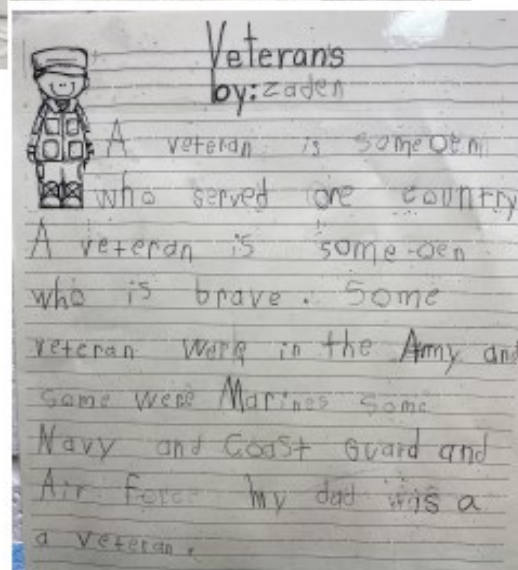 Veterans
by: zaden
A veteran is someoen
who served ore country
A veteran is some-oen
who is brave. Some
veteran were in the Army and
some were Marines some
Navy and Coast Guard and
Air force my dad was a
a veteran.